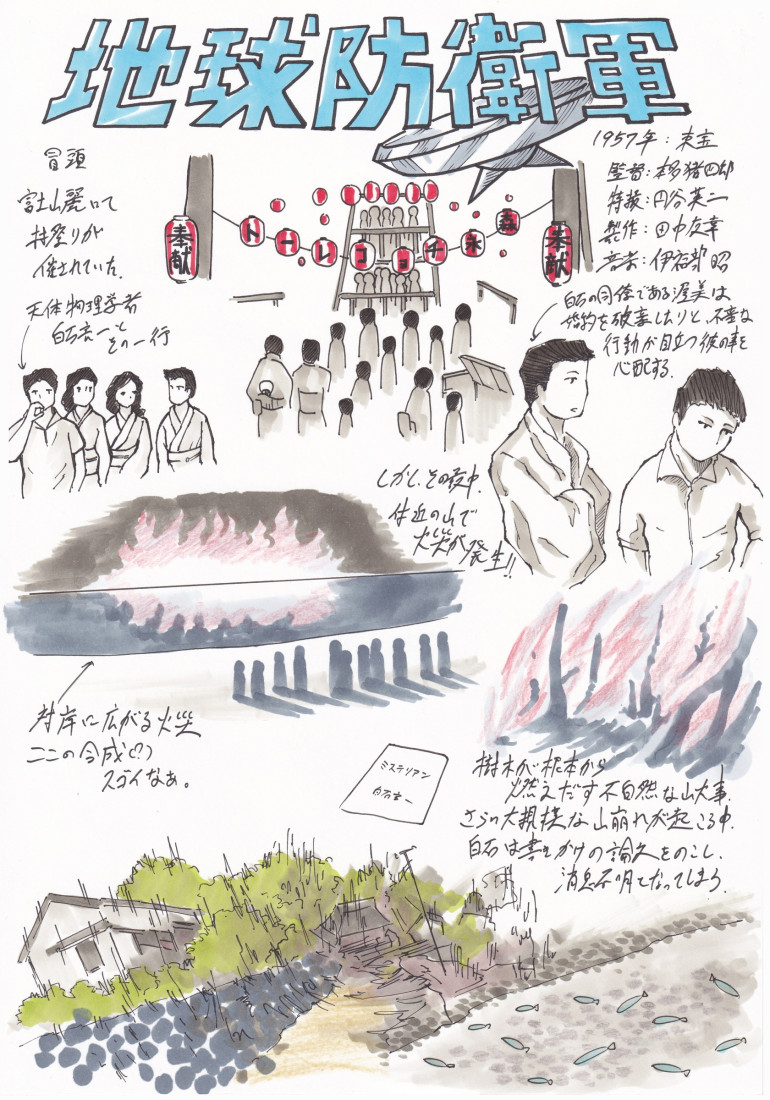 地球防衛軍
1957年：東宝
監督：本多猪四郎
特技：円谷英二
製作：田中友幸
音楽：伊福部 昭
冒頭
富士山麓にて
村祭りが
催されていた。
天体物理学者
白石亮一と
その一行
奉献
トーレコョチ永森
奉献
白石の同僚である渥美は
婚約を破棄したりと、不審な
行動が目立つ彼の事を
心配する。
しかし、その夜中、
付近の山で
火災が発生!!
対岸に広がる火災
ここの合成(?)
スゴイなぁ。
ミステリアン
白石亮一
樹木が根本から
燃えだす不自然な山火事。
さらに大規模な山崩れが起こる中、
白石は書きかけの論文をのこし、
消息不明となってしまう。